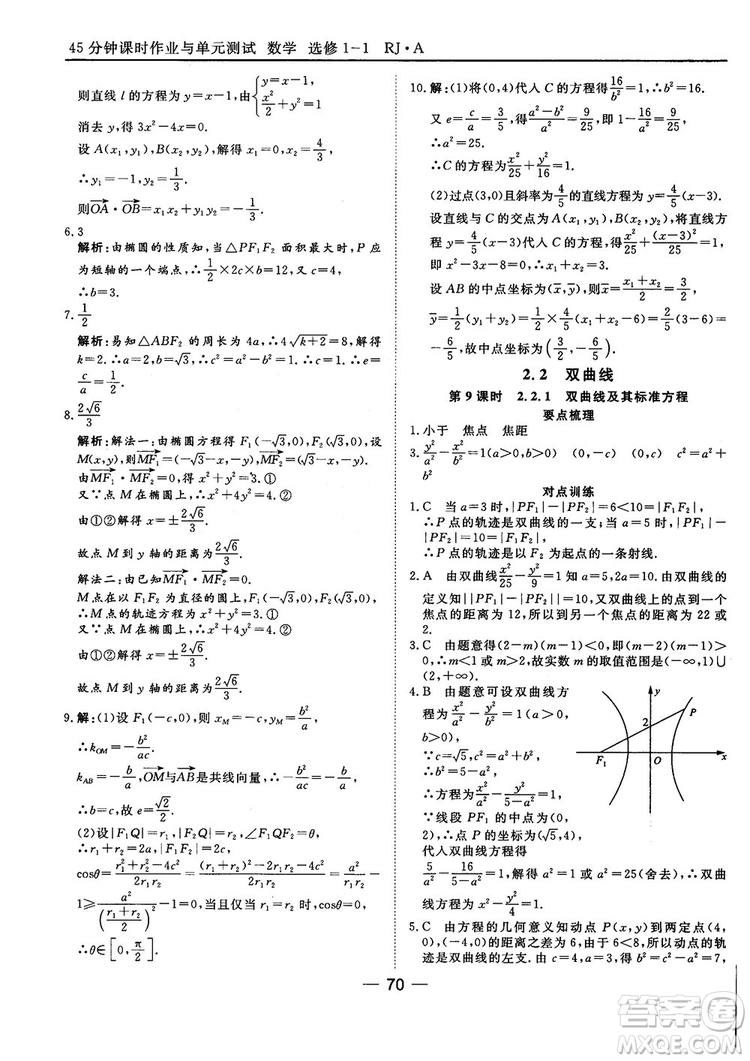 45分钟课时作业与单元测试 数学 选修1-1 RJ·A
则直线 l 的方程为 y=x-1,由{x²/2+y²=1, y=x-1
消去 y,得 3x²-4x=0.
设 A(x₁,y₁),B(x₂,y₂),解得 x₁=0,x₂=4/3.
∴y₁=-1,y₂=1/3.
则OA·OB=x₁x₂+y₁y₂=-1/3.
6.3
解析:由椭圆的性质知,当△PF₁F₂ 面积最大时,P 应
为短轴的一个端点,∴1/2×2c×b=12,又 c=4,
∴b=3.
7.1/2
解析:易知△ABF₂ 的周长为 4a,∴4√(k+2)=8,解得 k=
2.∴a=2.又∵b=√3,∴c²=a²-b²=4-3=1,∴e=
c/a=1/2.
8.2√6/3
解析:解法一:由椭圆方程得 F₁(-√3,0),F₂(√3,0),设
M(x,y),则MF₁=(-√3-x,-y),MF₂=(√3-x,-y).
由MF₁·MF₂=0,得 x²+y²=3.①
又∵点 M 在椭圆上,∴x²+4y²=4.②
由①②解得 x=±2√6/3.
故点 M 到 y 轴的距离为2√6/3.
解法二:由已知MF₁·MF₂=0,得MF₁⊥MF₂.
M 点在以 F₁F₂ 为直径的圆上,F₁(-√3,0),F₂(√3,0),
∴M 点的轨迹方程为 x²+y²=3.①
又∵点 M 在椭圆上,∴x²+4y²=4.②
由①②解得 x=±2√6/3.
故点 M 到 y 轴的距离为2√6/3.
9.解:(1)设 F₁(-c,0),则 x_M=-c,y_M=b²/a,
∴k_OM=-b²/ac.
k_AB=-b/a,OM与AB是共线向量,∴-b²/ac=-b/a,
∴b=c,故 e=√2/2.
(2)设|F₁Q|=r₁,|F₂Q|=r₂,∠F₁QF₂=θ,
∴r₁+r₂=2a,|F₁F₂|=2c,
cosθ=(r₁²+r₂²-4c²)/2r₁r₂=((r₁+r₂)²-2r₁r₂-4c²)/2r₁r₂=a²/r₁r₂-
1≥a²/((r₁+r₂)/2)²-1=0,当且仅当 r₁=r₂ 时,cosθ=0,
∴θ∈[0,π/2].
10.解:(1)将(0,4)代入 C 的方程得16/b²=1,∴b²=16.
又 e=c/a=3/5,得(a²-b²)/a²=9/25,即1-16/a²=9/25,
∴a²=25.
∴C 的方程为x²/25+y²/16=1.
(2)过点(3,0)且斜率为4/5的直线方程为 y=4/5(x-3).
设直线与 C 的交点为 A(x₁,y₁),B(x₂,y₂),
将直线方程 y=4/5(x-3)代入 C 的方程,得x²/25+(x-3)²/25=
1,即 x²-3x-8=0,∴x₁+x₂=3.
设 AB 的中点坐标为(x̄,ȳ),则x̄=(x₁+x₂)/2=3/2,
ȳ=(y₁+y₂)/2=2/5(x₁+x₂-6)=2/5(3-6)=
-6/5,故中点坐标为(3/2,-6/5).
2.2 双曲线
第9课时 2.2.1 双曲线及其标准方程
要点梳理
1.小于 焦点 焦距
3.y²/a²-x²/b²=1(a>0,b>0) (0,-c),(0,c) a²+b²=
c²
对点训练
1.C 当 a=3 时,|PF₁|-|PF₂|=6<10=|F₁F₂|,
∴P 点的轨迹是双曲线的一支;当 a=5 时,|PF₁|-|PF₂|=10=|F₁F₂|,
∴P 点的轨迹是以 F₂ 为起点的一条射线.
2.A 由双曲线x²/25-y²/9=1 知 a=5,2a=10.由双曲线的
定义知||PF₁|-|PF₂||=10,又双曲线上的点到一个
焦点的距离为 12,所以到另一个焦点的距离为 22 或
2.
3.C 由题意得(2-m)(m-1)<0,即(m-2)(m-1)>
0,∴m<1 或 m>2,故实数 m 的取值范围是(-∞,1)∪
(2,+∞).
4.B 由题意可设双曲线方
程为x²/a²-y²/b²=1(a>0,
b>0).
∵c=√5,∴b²=c²-a²=5
-a².
∴方程为x²/a²-y²/(5-a²)=1.
∵线段 PF₁ 的中点坐标为(0,
2),∴点 P 的坐标为(√5,4),
代入双曲线方程得
5/a²-16/(5-a²)=1,解得 a²=1 或 a²=25(舍去),∴双曲
线方程为 x²-y²/4=1.
y
P
2
F₁
O
x
5.C 由方程的几何意义知动点 P(x,y)到两定点(4,
0),(-4,0)的距离之差为 6,由于 6<8,所以动点的轨
迹是双曲线的左支.
— 70 —